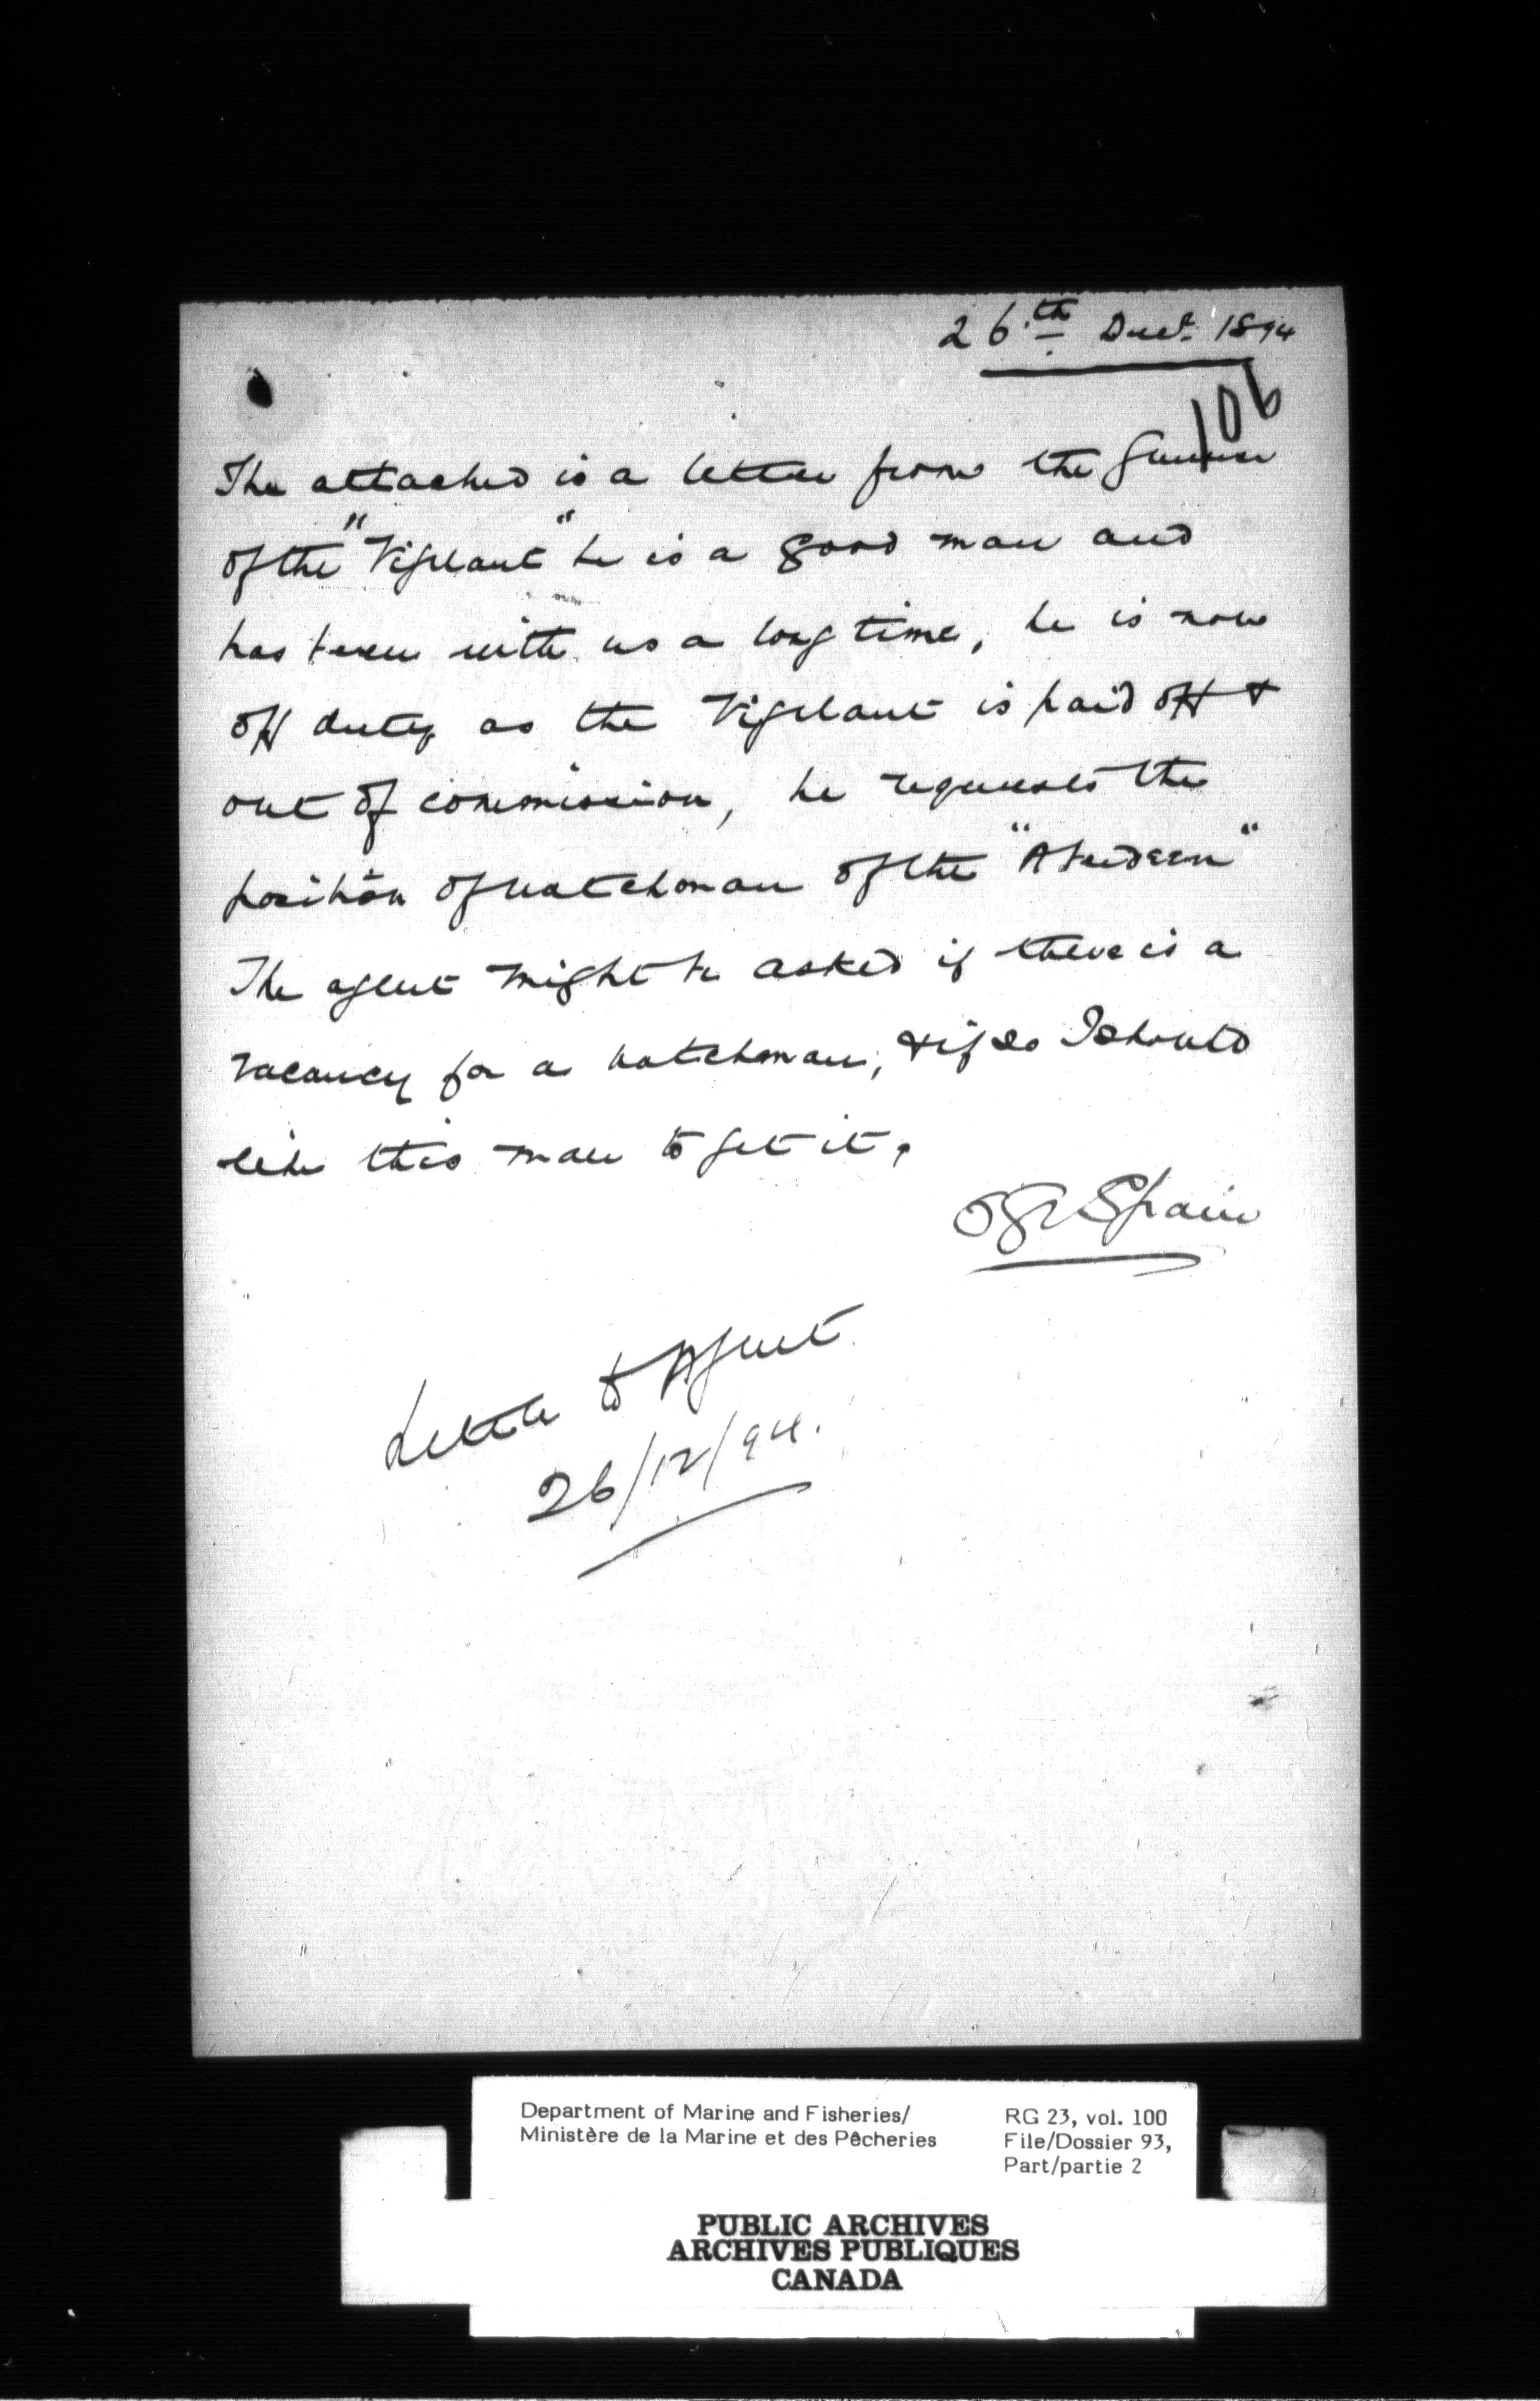 26th Decr. 1894
106
The attached is a letter from the Gunner
of the "Vigilant" he is a good man and
has been with us a long time, he is now
off duty as the Vigilant is paid off &
out of commission, he requests the
position of watchman of the "Aberdeen"
The agent might be asked if there is a
vacancy for a watchman, & if so I should
like this man to get it.
OGV Spain
Letter to Agent
26/12/94.
Department of Marine and Fisheries/ RG 23, vol. 100
Ministère de la Marine et des Pêcheries File/Dossier 93,
Part/partie 2
PUBLIC ARCHIVES
ARCHIVES PUBLIQUES
CANADA